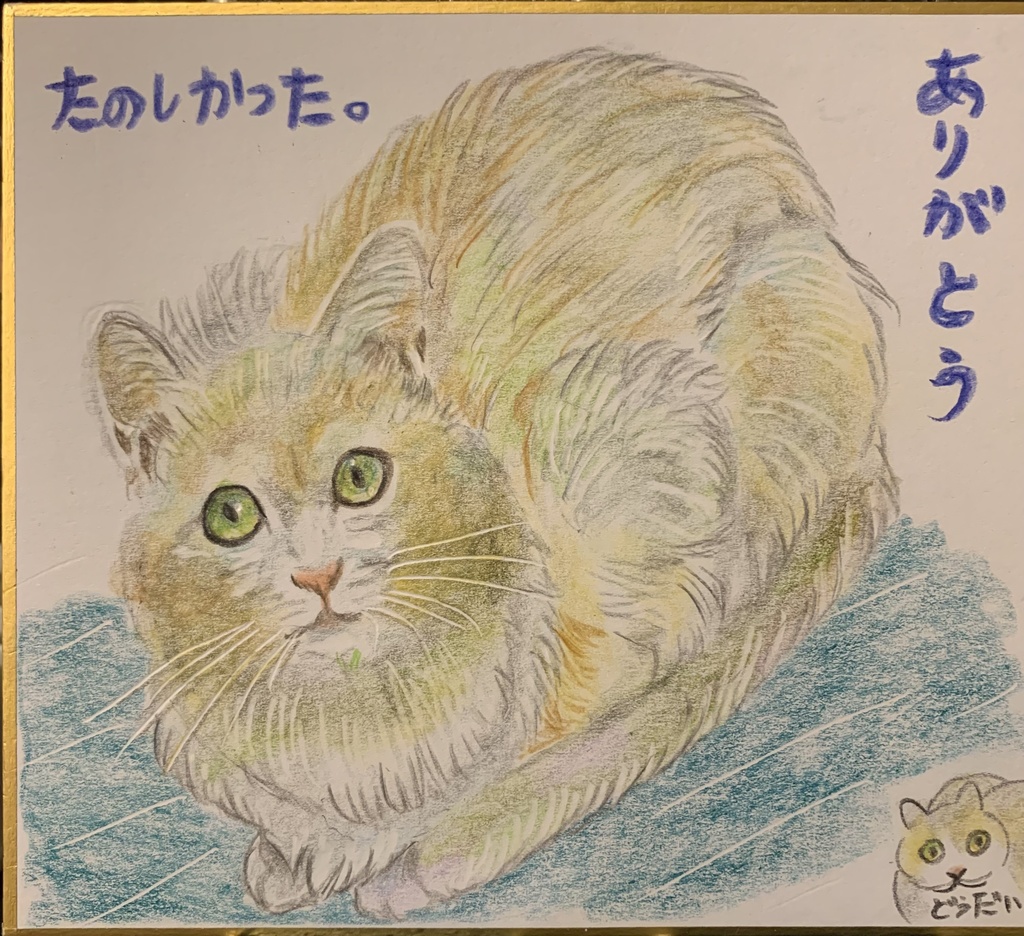 たのしかった。
ありがとう
どうだい